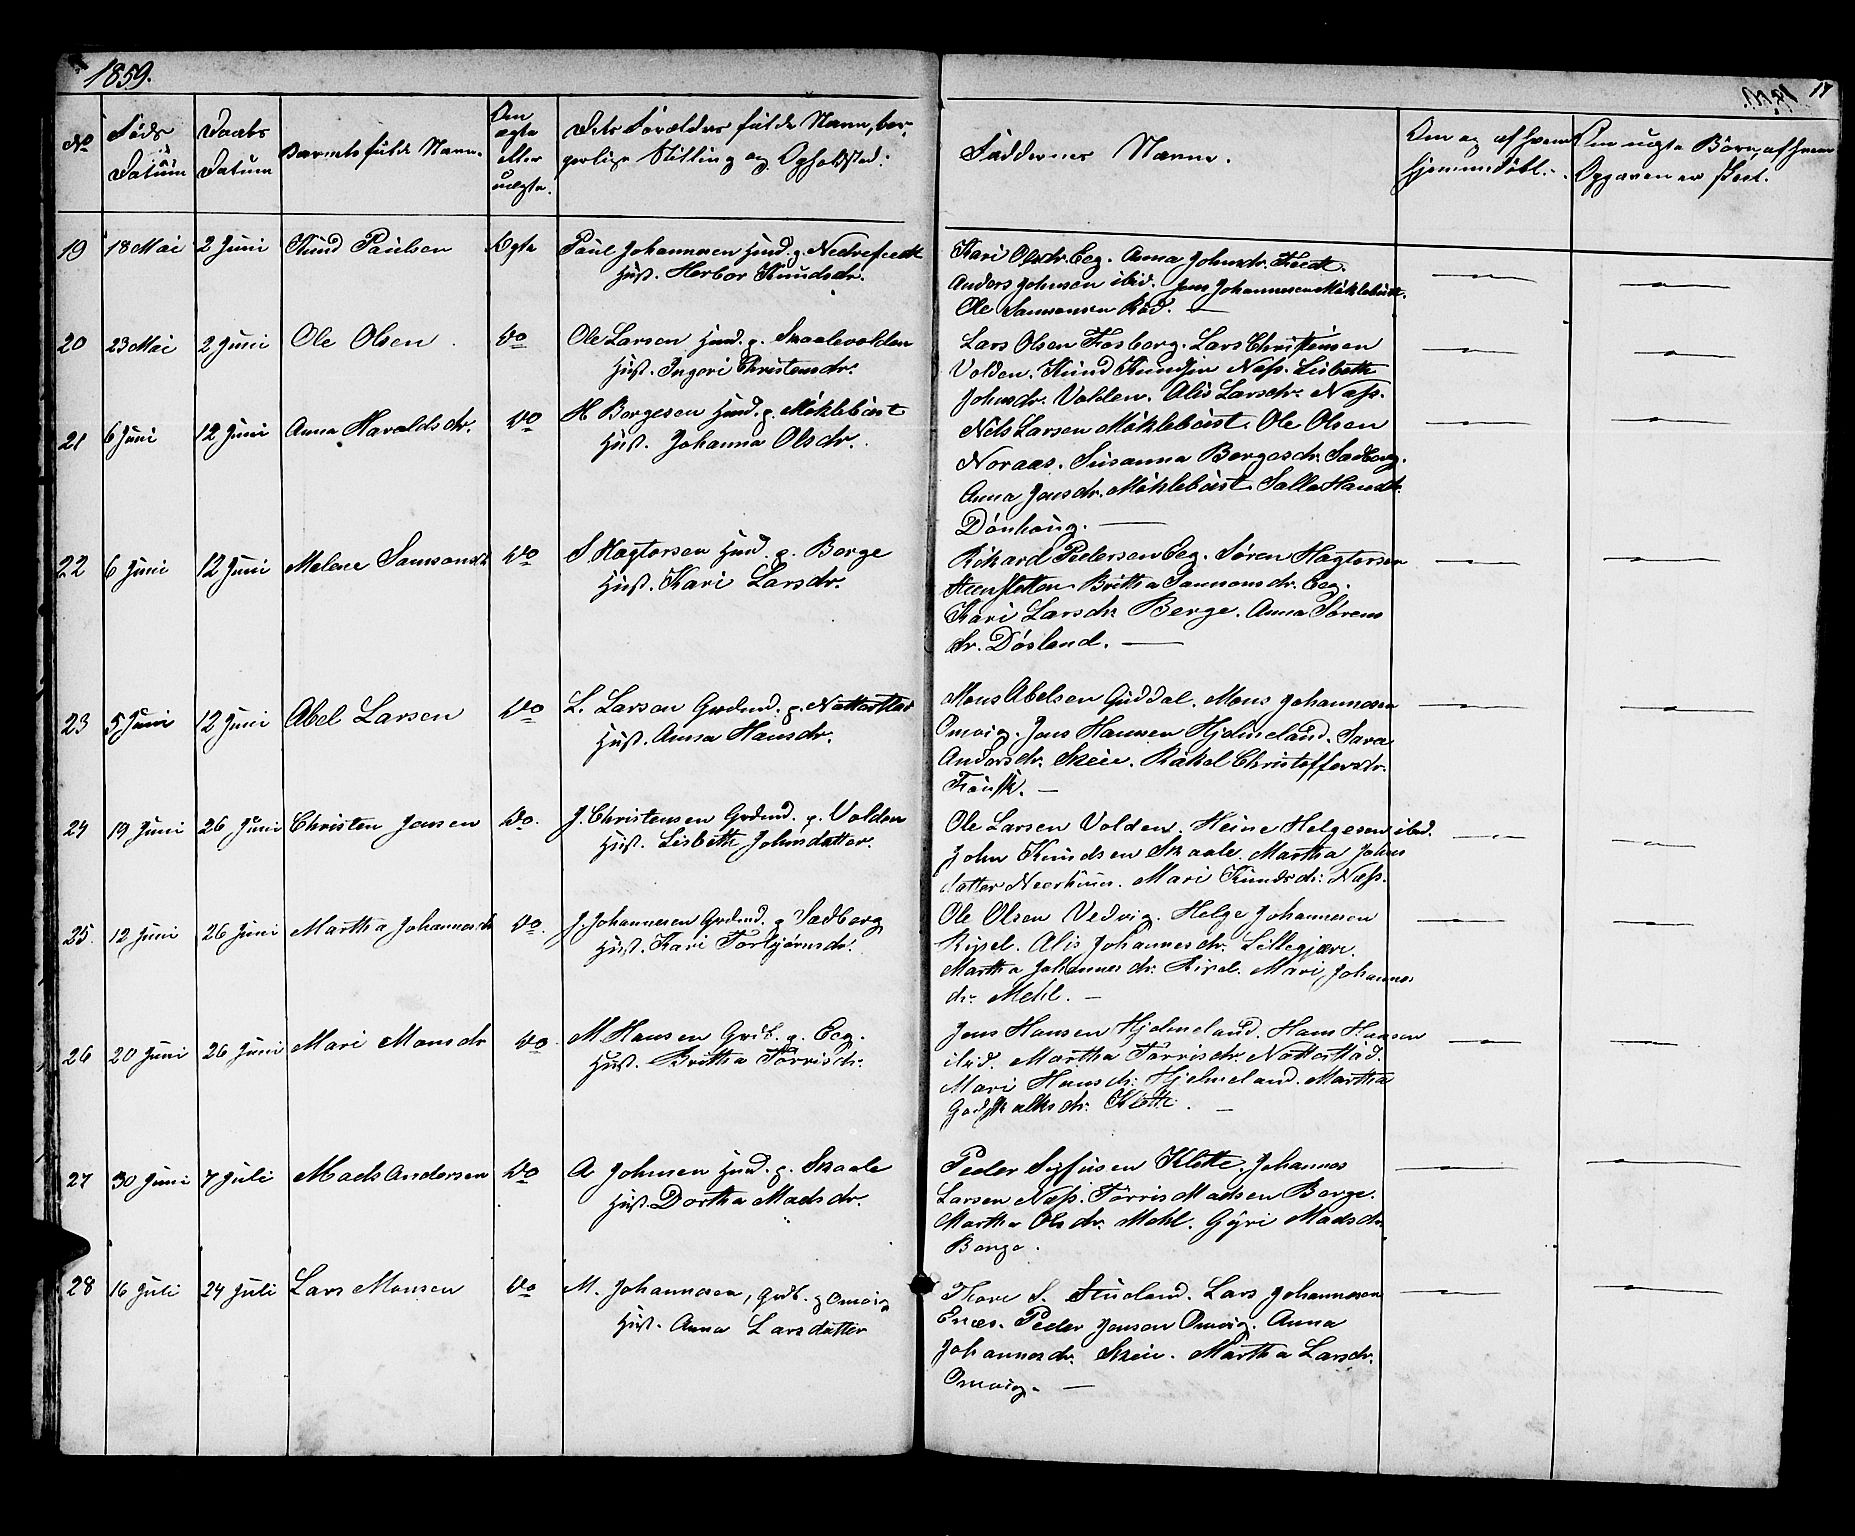 1859.
17
No
Føds
Datum
Daabs
Datum
Barnets fulde Navn.
Om
ægte
eller
uægte.
Dets Forældres fulde Navn, bor-
gerlige Stilling og Opholdsted.
Faddernes Navne.
Om og af hvem
hjemmedøbt.
Om uægte Børn, af hvem
Opgaven er skeet.
19 18 Mai 2 Juni Knud Paulsen Ægte Paul Johannesen Huusd. g. Nedrefledt
Hust. Herbor Knudsdr.
Kari Olsdr. Eeg. Anna Johnsdr. Fledt.
Anders Johnsen ibid. Jens Johannesen Møklebust.
Ole Samsonsen Rød.
20 23 Mai 2 Juni Ole Olsen Do Ole Larsen Huusd. g. Skaalevolden
Hust. Ingeri Christensdr.
Lars Olsen Fosberg. Lars Christensen
Volden. Knud Knudsen Næss. Lisbeth
Johnsdr. Volden. Alis Larsdr. Næss.
21 6 Juni 12 Juni Anna Haraldsdr. Do H Borgesen Huusd. g. Møklebust
Hust. Johanna Olsdr.
Nils Larsen Møklebust. Ole Olsen
Noraas. Susanna Borgesdr. Sædberg.
Anna Jensdr. Møklebust. Salle
Dønhaug.
22 6 Juni 12 Juni Malene Samsonsdr Do S Hagtorsen Huusd. g. Berge
Hust. Kari Larsdr.
Rikard Pedersen Eeg. Søren Hagtorsen
Britha Samsonsdr. Eeg.
Kari Larsdr. Berge. Anna Sørens
dr. Døsland.
23 5 Juni 12 Juni Abel Larsen Do L. Larsen Grdmd. g. Nattestad
Hust. Anna Hansdr.
Mons Abelsen Guddal. Mons Johannesen
Omvig. Jens Hansen Hjelmeland. Sara
Andersdr. Skeie. Rakel Christoffersdr.
24 19 Juni 26 Juni Christen Jensen Do. J. Christensen Grdmd. g. Volden
Hust. Lisbeth Johnsdatter.
Ole Larsen Volden. Heine Helgesen ibid.
John Knudsen Skaale. Martha Johns
datter Neerhuus. Mari Knudsdr. Næss.
25. 12 Juni 26 Juni Martha Johannesdr Do. J. Johannesen Grdmd. g Sædberg
Hust. Kari Torbjørnsdr.
Ole Olsen Vedvig. Helge Johannesen
Ripel. Alis Johannesdr. Lillegjære.
Martha Johannesdr. Ripel. Mari Johannes
dr. Mehl.
26 20 Juni 26 Juni Mari Monsdr Do. M Hansen Grdb. g. Eeg.
Hust. Britha Torrisdr.
Jens Hansen Hjelmeland. Hans Hansen
ibid. Martha Torrisdr. Nattestad.
Mari Hansdr. Hjelmeland. Martha
Godskalksdr. Klette.
27 30 Juni 7 Juli Mads Andersen Do A Johnsen Huusd. g. Skaale
Hust. Dortha Madsdr.
Peder Sjfusen Klette. Johannes
Larsen Næss. Torris Madsen Berge.
Martha Olsdr. Mehl. Gyri Madsdr.
Berge.
28 16 Juli 24 Juli Lars Monsen Do M. Johannesen, Grdb. g Omvig
Hust. Anna Larsdatter
Thore S. Stueland. Lars Johannesen
Enæs. Peder Jensen Omvig. Anna
Johannesdr. Skeie. Martha Larsdr.
Omvig.